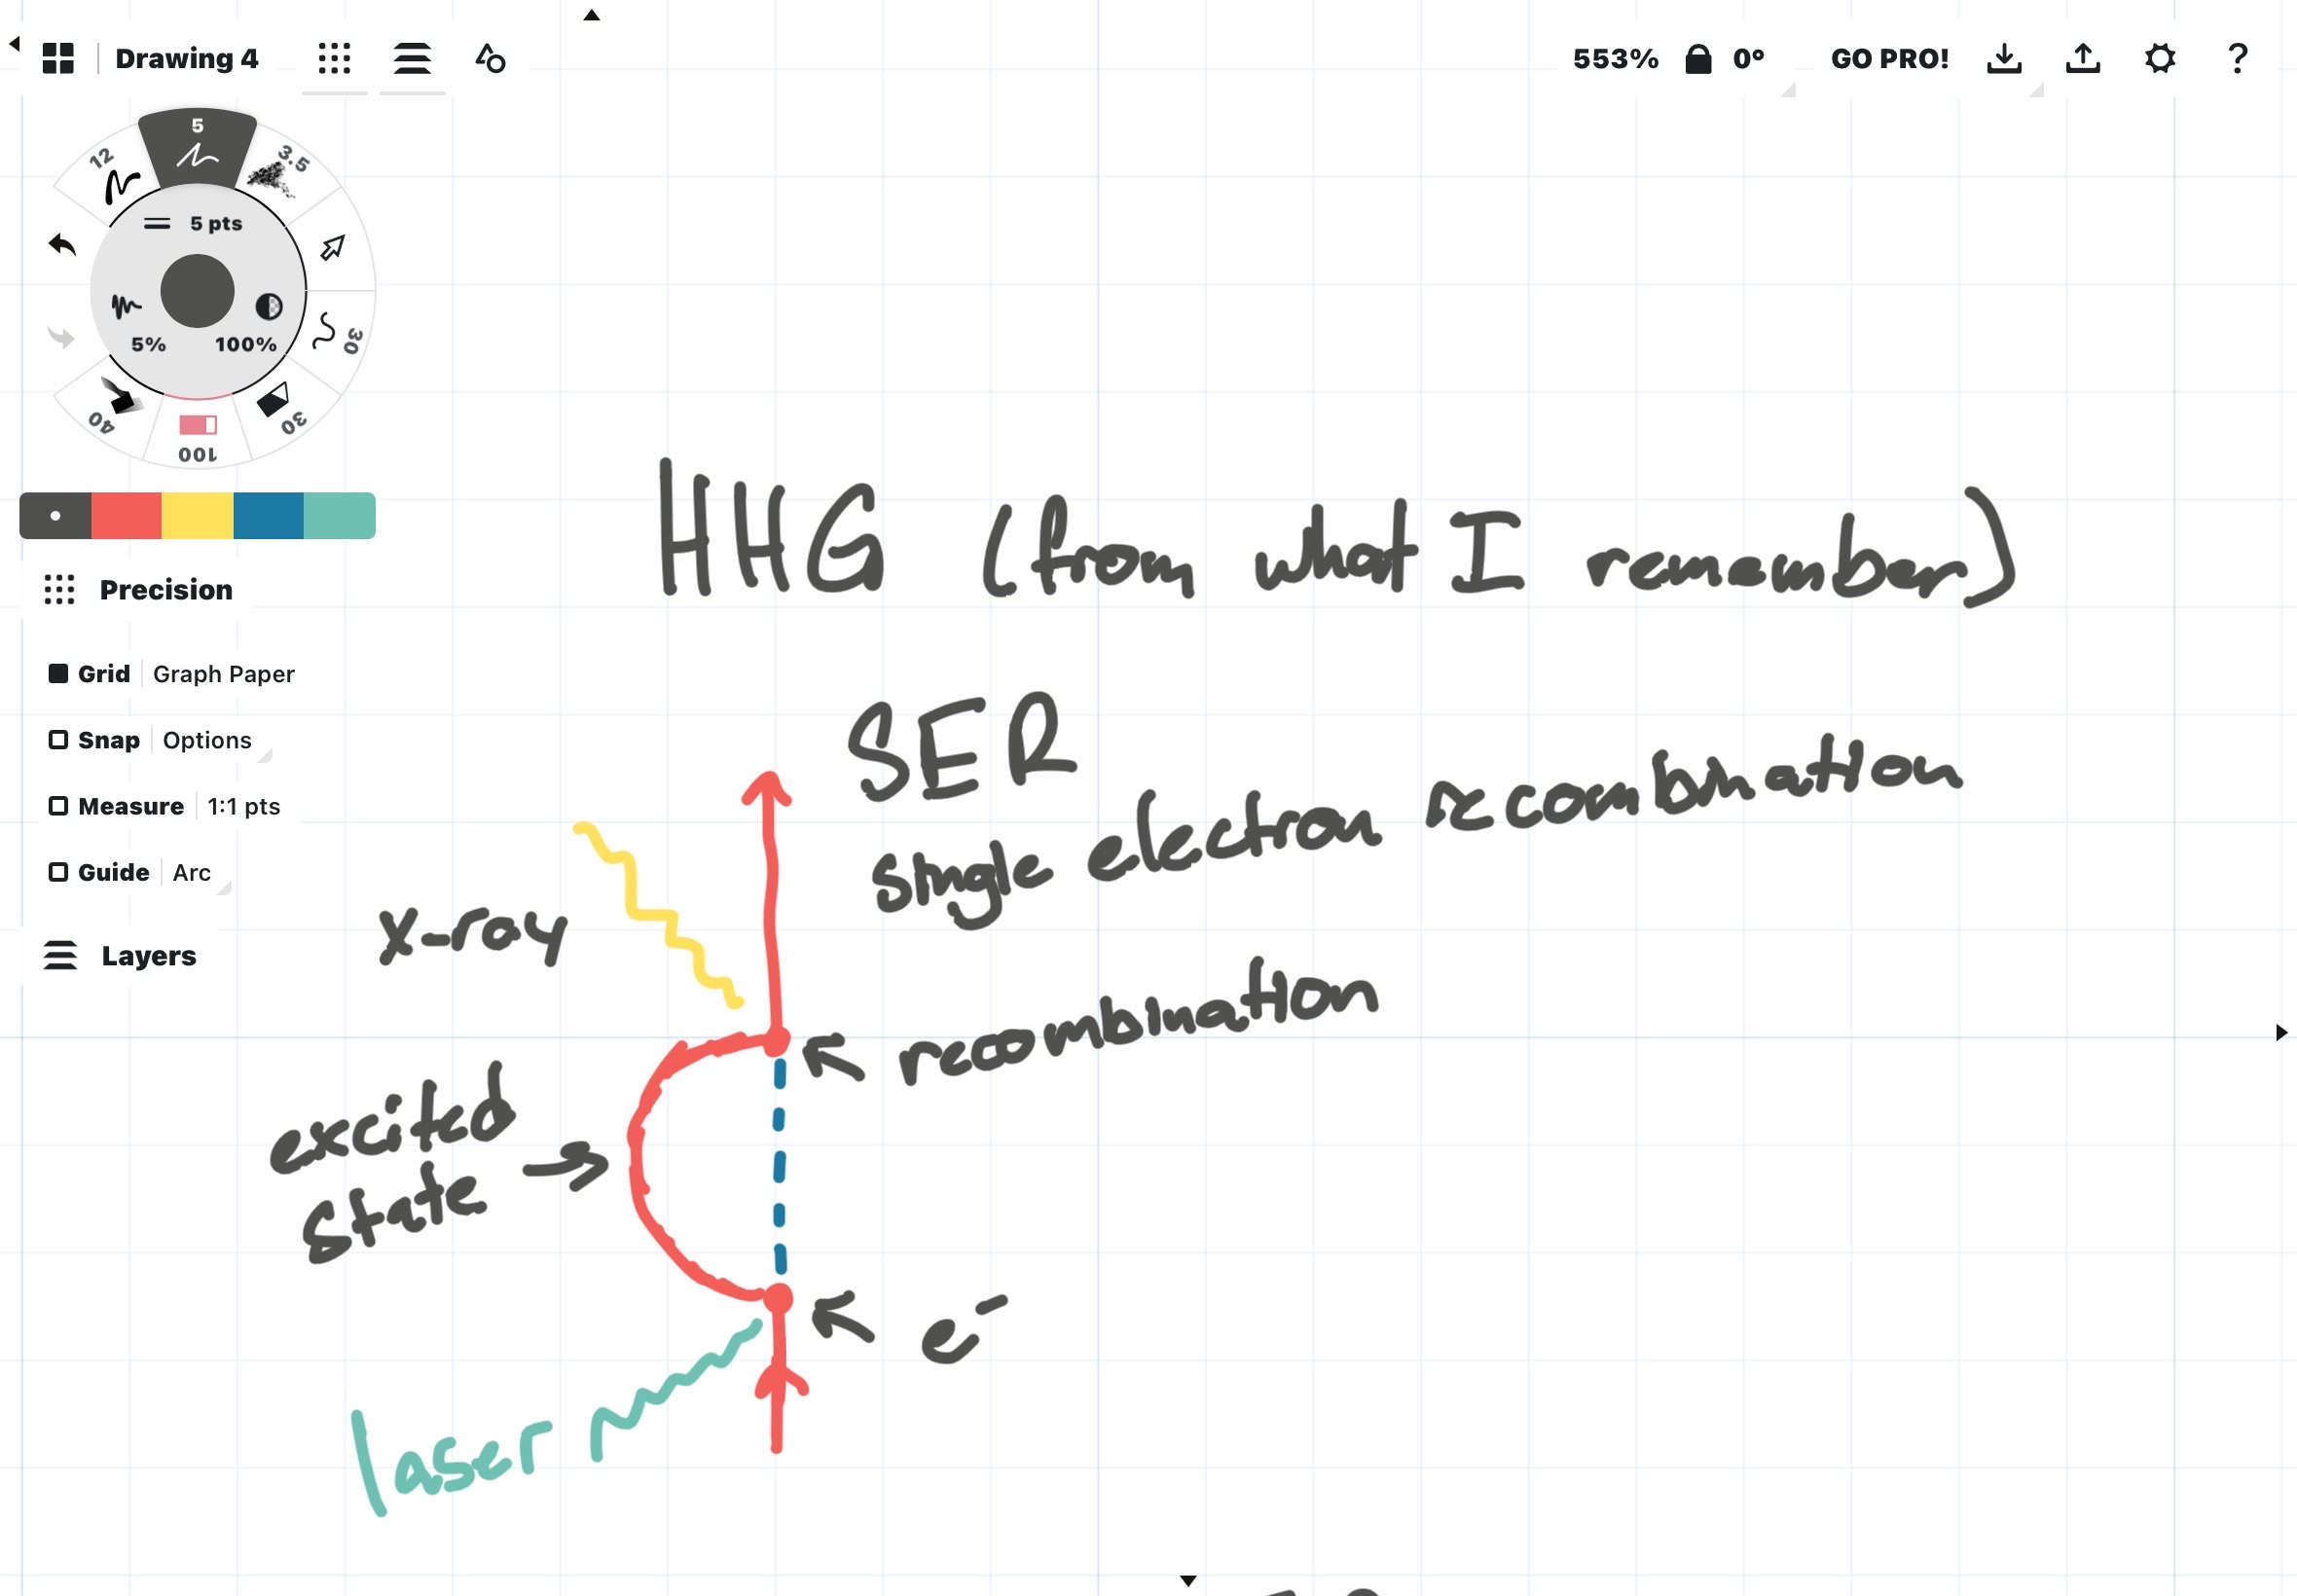 Drawing 4
553% 0° GO PRO!
5
12
3.5
5 pts
30
5% 100%
40
30
100
Precision
Grid Graph Paper
Snap Options
Measure 1:1 pts
Guide Arc
Layers
HHG (from what I remember)
SER
single electron recombination
x-ray
recombination
excited
state
e⁻
laser